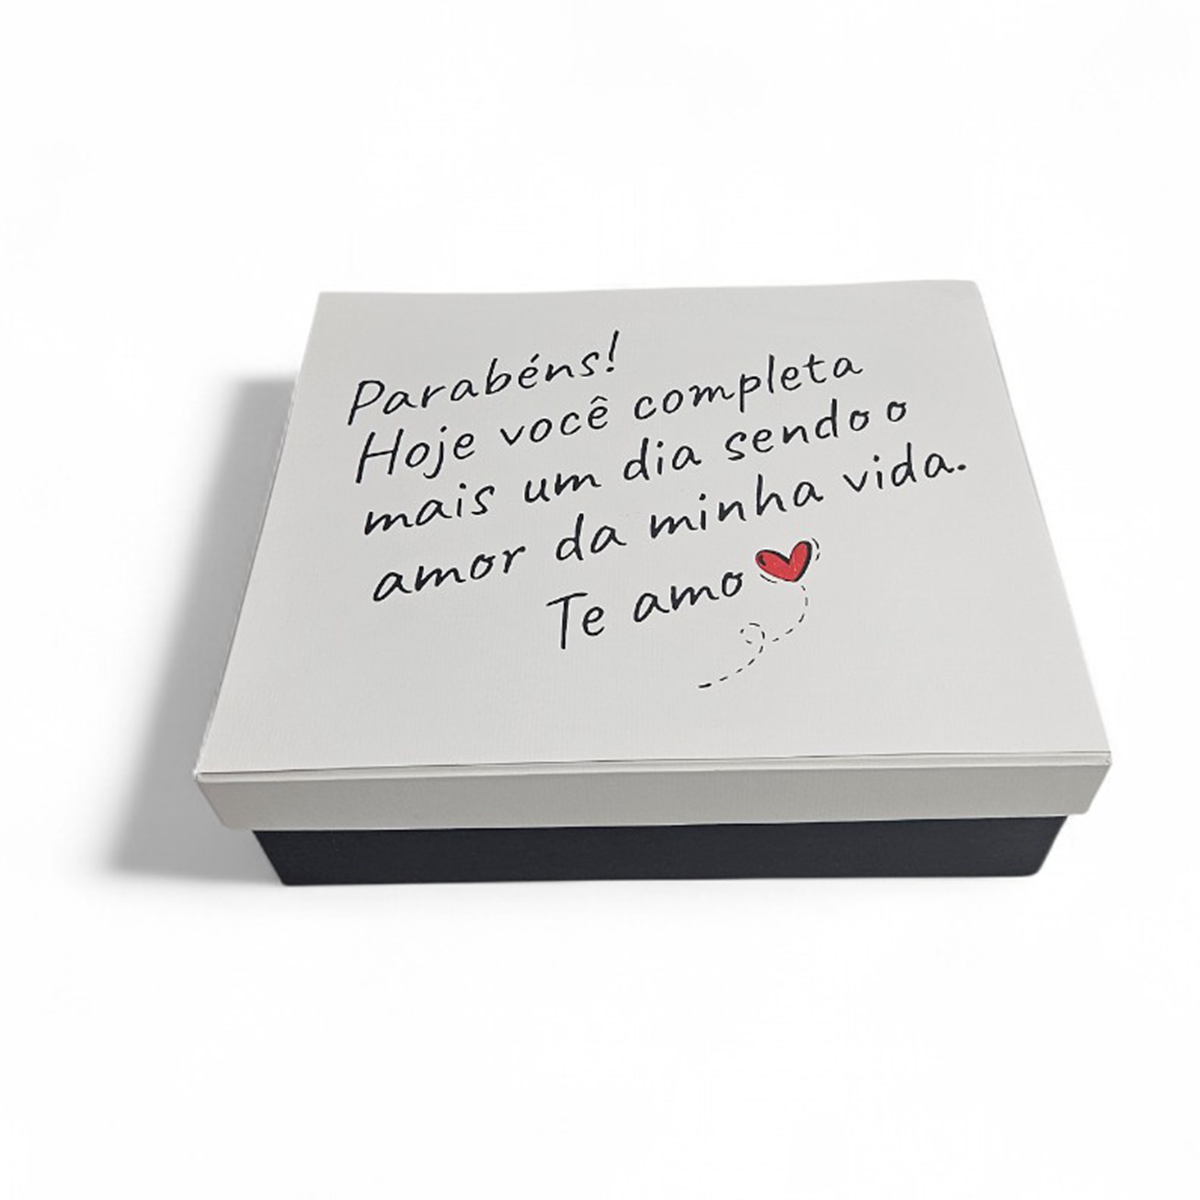 Parabéns!
Hoje você completa
mais um dia sendo o
amor da minha vida.
Te amo